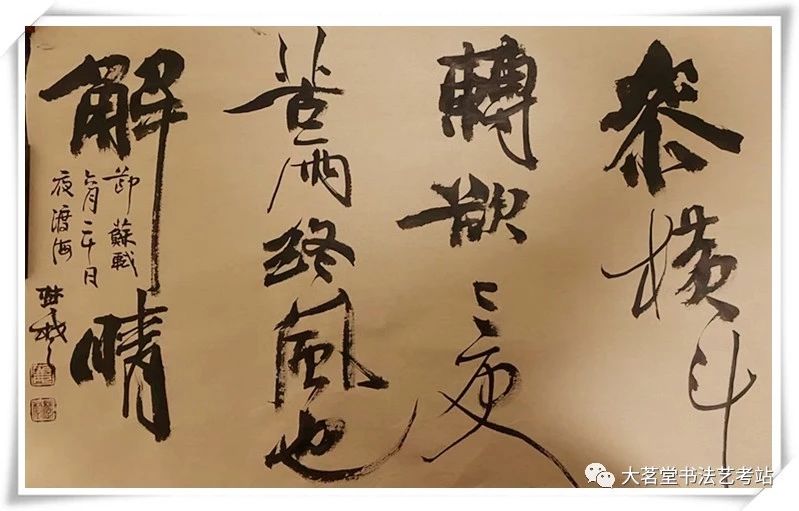 參橫斗
轉欲三更
苦雨終風也
解晴
節蘇軾
六月二十日
夜渡海
大茗堂书法艺考站